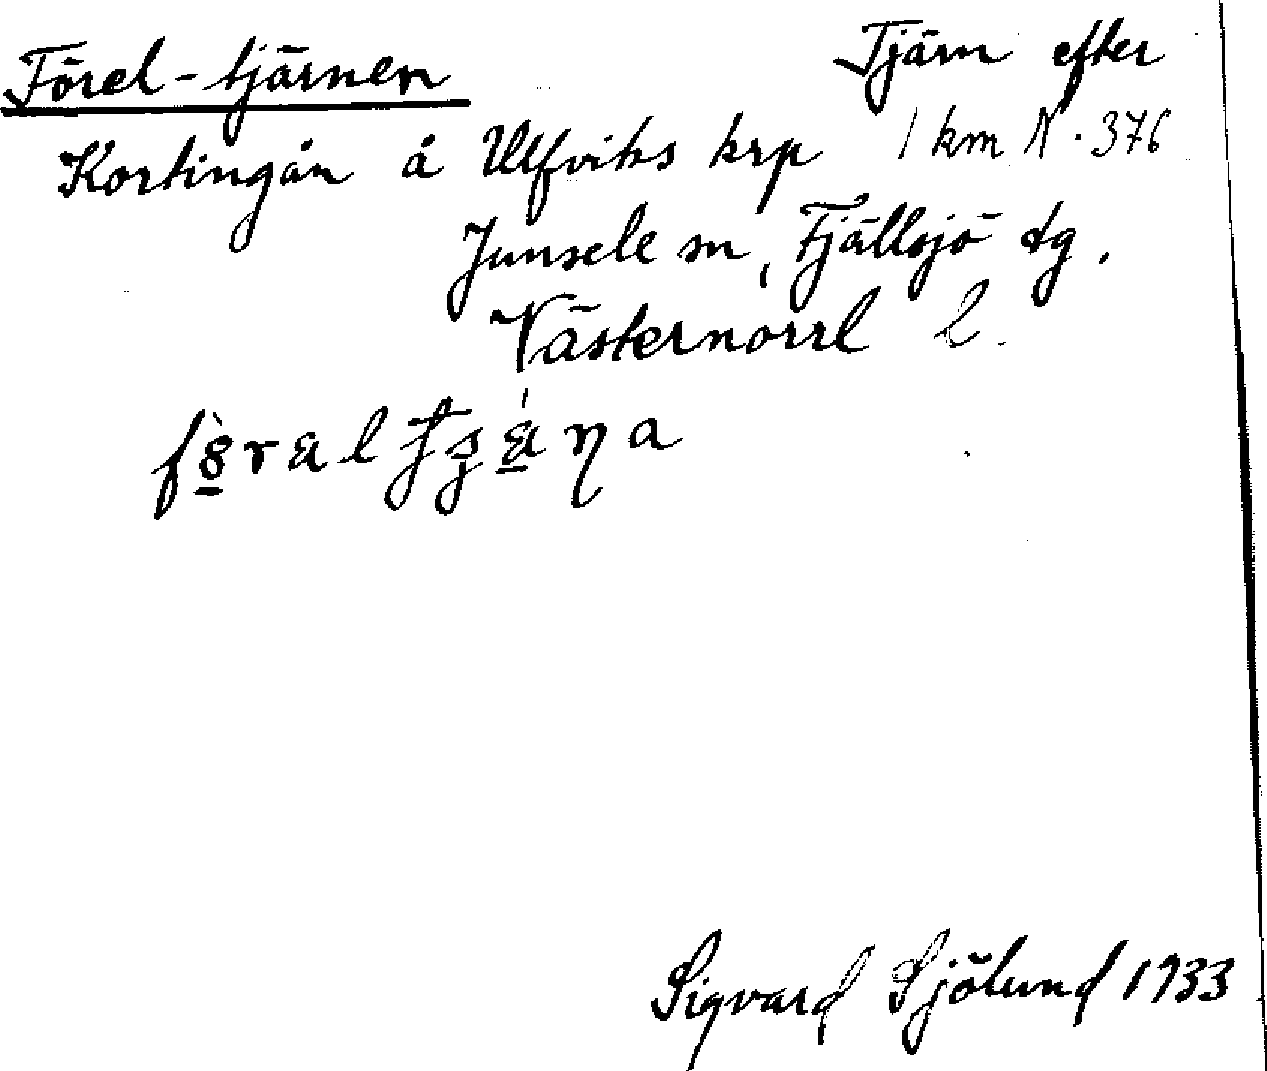 Förel-tjärnen Tjärn efter
Kortingån å Ulfviks krp 1 km N. 376
Junsele sn, Fjällsjö tg.
Västernorrl l.
Sigvard Sjölund 1933